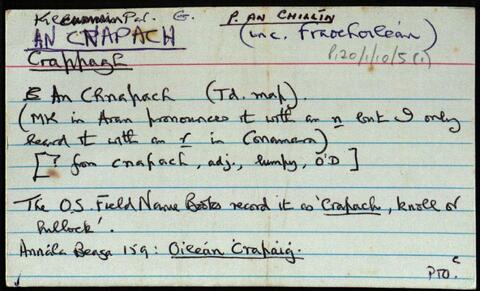 Par. G. P. AN CHILLÍN
AN CNAPACH (inc. Fraochoileán)
Crappagh P120/1/10/5(1)
An Cnapach (Td. map)
(MK in Aran pronounces it with an n but I only
heard it with an r in Conamara)
[? from cnapach, adj., lumpy, O'D]
The O.S. Field Name Books record it as 'Crapach, knoll or
hillock'.
Annála Beaga 159: Oileán Crapaig.
PTO.